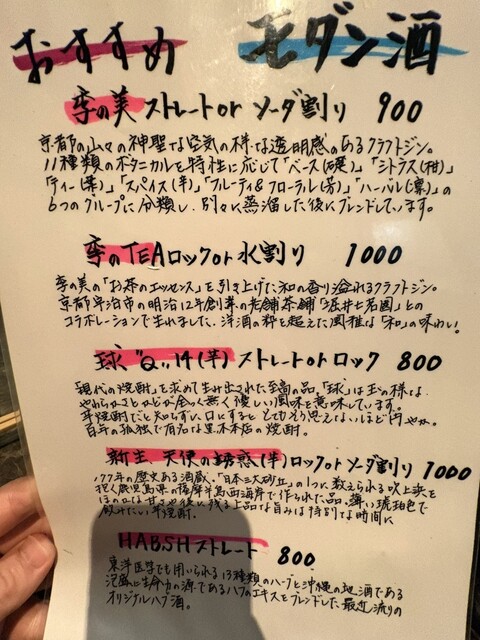 おすすめ モダン酒
季の美 ストレートor ソーダ割り 900
京都の山々の神聖な空気の様な透明感のあるクラフトジン。
11種類のボタニカルを特性に応じて「ベース(礎)」「シトラス(柑)」
「ティー(茶)」「スパイス(辛)」「フルーティ&フローラル(芳)」「ハーバル(凛)」の
6つのグループに分類し、別々に蒸溜した後にブレンドしています。
季のTEA ロックor 水割り 1000
季の美の「お茶のエッセンス」を引き上げた和の香り溢れるクラフトジン。
京都宇治市の明治12年創業の老舗茶舗「堀井七茗園」との
コラボレーションで生れました。洋酒の粋を超えた風雅な「和」の味わい!
球"Q"14(芋) ストレートorロック 800
「現代の焼酎」を求めて生み出された至高の品。「球」は玉の様な
やわらかさとかどが全く無く優しい風味を意味しています。
芋焼酎だと知らずに口にするととてもそう思えないほど円やか。
百年の孤独で有名な黒木本店の焼酎。
新生 天使の誘惑(芋)ロックorソーダ割り 1000
「日本三大砂丘」の1つに数えられる吹上浜を
鹿児島県の薩摩半島西海岸で作られた品。薄い琥珀色で
上品な旨みは特別な時間に
飲みたい芋焼酎。
HABSHストレート 800
東洋医学でも用いられる13種類のハーブと沖縄の地酒である
泡盛と生命力の源であるハブのエキスをブレンドした最近流りの
オリジナルハブ酒。